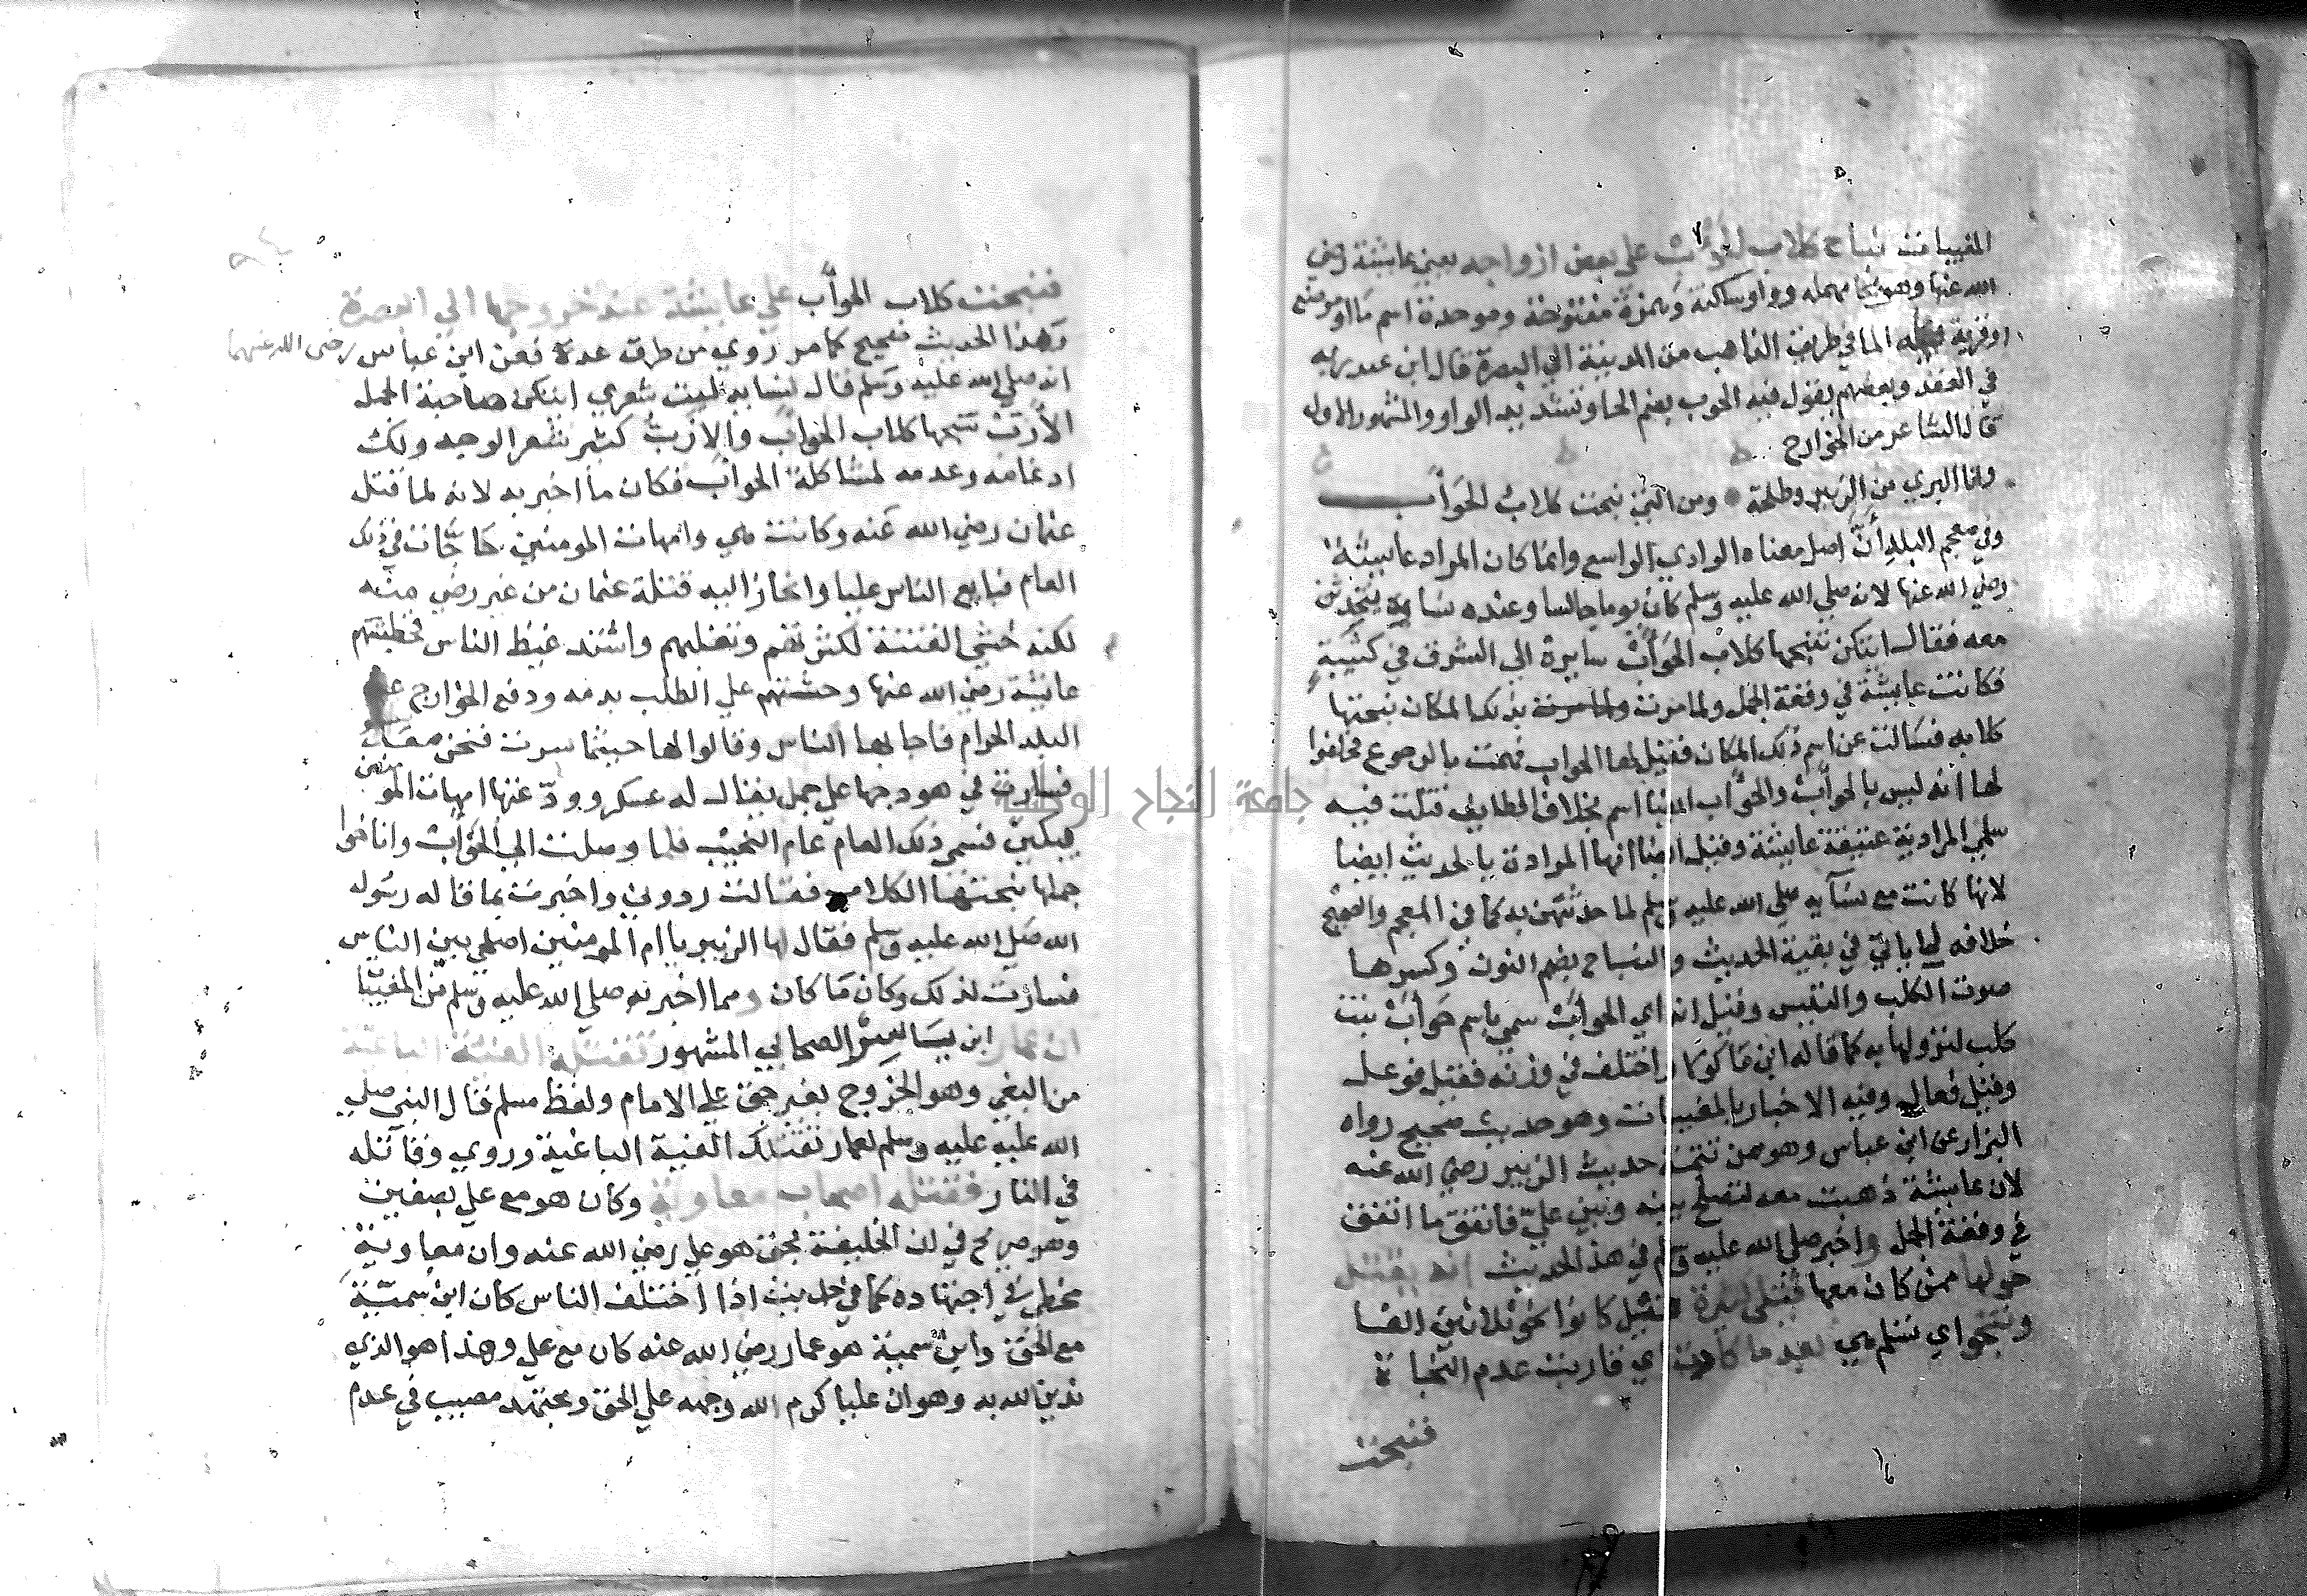 المغيبات نباح كلاب الحوأب على بعض ازواجه يعني عايشة رضي
الله عنها وهو بحا مهمله وواو ساكنة وهمزة مفتوحة وموحدة اسم ماا وموضع
او قرية فيه الما في طريق الذاهب من المدينة الي البصرة قال ابن عبد ربه
في العقد وبعضهم يقول فيه الحوب بضم الحا وتشديد الواو والمشهور الاول
قال الشاعر من الخوارج
وانا البري من الزبير وطلحة ومن التي نبحت كلاب الحوأب
وفي معجم البلدان اصل معناه الوادي الواسع وانما كان المراد عايشة
رضي الله عنها لانه صلي الله عليه وسلم كان يوما جالسا وعنده نساوه يتحدثن
معه فقال ايتكن تنبحها كلاب الحوأب سايرة الي الشرق في كتيبة
فكانت عايشة في وقعة الجمل ولما مرت ولما مرت بذلك المكان نبحتها
كلابه فسالت عن اسم ذلك المكان فقيل لها الحواب فهمت بالرجوع فحلفوا
لها انه ليس بالحوأب والحوأب ايضا اسم مخلاف بالطايف قتلت فيه
سلمي المرادية عتيقة عايشة وقيل ايضا انها المرادة بالحديث ايضا
لانها كانت مع نسآيه صلي الله عليه وسلم لما حدثهن به كما في المعجم والصحيح
خلافه لما ياتي في بقية الحديث والنباح بضم النون وكسرها
صوت الكلب والتيس وقيل انه اي الحوأب سمي باسم حوأب بنت
كلب لنزولها به كما قاله ابن ماكولا واختلف في وزنه فقيل فوعل
وقيل فعال وفيه الاخبار بالمغيبات وهو حديث صحيح رواه
البزار عن ابن عباس وهو من تتمة حديث الزبير رضي الله عنه
لان عايشة ذهبت معه لتصلح بينه وبين علي فاتفق ما اتفق
في وقعة الجمل واخبر صلي الله عليه وسلم في هذا الحديث انه يقتل
حولها ممن كان معها قتلي كثيرة فقيل كانوا نحو ثلاثين الفا
وتنجو اي تسلم هي بعد ما كادت اي قاربت عدم النجاة
فنبحت
فنبحت كلاب الحوأب علي عايشة عند خروجها الي البصرة
وهذا الحديث صحيح كما مر روي من طرق عدة فعن ابن عباس رضى الله عنهما
انه صلي الله عليه وسلم قال لنسايه ليت شعري ايتكن صاحبة الجمل
الأزبب تنبحها كلاب الحوأب والازبب كثير شعر الوجه وفك
ادغامه وعدمه لمشاكلة الحوأب فكان ما اخبر به لانه لما قتل
عثمان رضي الله عنه وكانت هي وامهات المومنين حاجات في ذلك
العام فبايع الناس عليا وانحاز اليه قتلة عثمان من غير رضي منه
لكنه خشي الفتنة لكثرتهم وتغلبهم واشتد غيظ الناس فخطبتهم
عايشة رضي الله عنها وحثتهم علي الطلب بدمه ودفع الخوارج عن
البلد الحرام فاجابها الناس وقالوا لها حيثما سرت فنحن معك
فسارت في هودجها علي جمل يقال له عسكر وودعنها امهات المومنين
يبكين فسمي ذلك العام عام النحيب فلما وصلت الي الحوأب واناخوا
جملها نبحتها الكلاب فقالت ردوني واخبرت بما قاله رسول
الله صلي الله عليه وسلم فقال لها الزبير يا ام المومنين اصلحي بين الناس
فسارت لذلك وكان ما كان ومما اخبر به صلي الله عليه وسلم من المغيبا
ان عمار ابن ياسر الصحابي المشهور تقتله الفئة الباغية
من البغي وهو الخروج بغير حق علي الامام ولفظ مسلم قال النبي صلي
الله عليه عليه وسلم لعمار تقتلك الفية الباغية وروي وقاتله
في النار فقتله اصحاب معاوية وكان هو مع علي بصفين
وهو صريح في ان الخليفة بحق هو علي رضي الله عنه وان معاوية
مخطئ في اجتهاده كما في حديث اذا اختلف الناس كان ابن سمية
مع الحق وابن سمية هو عمار رضي الله عنه كان مع علي وهذا هو الذي
ندين الله به وهو ان عليا كرم الله وجهه علي الحق ومجتهد مصيب في عدم
جامعة النجاح الوطنية